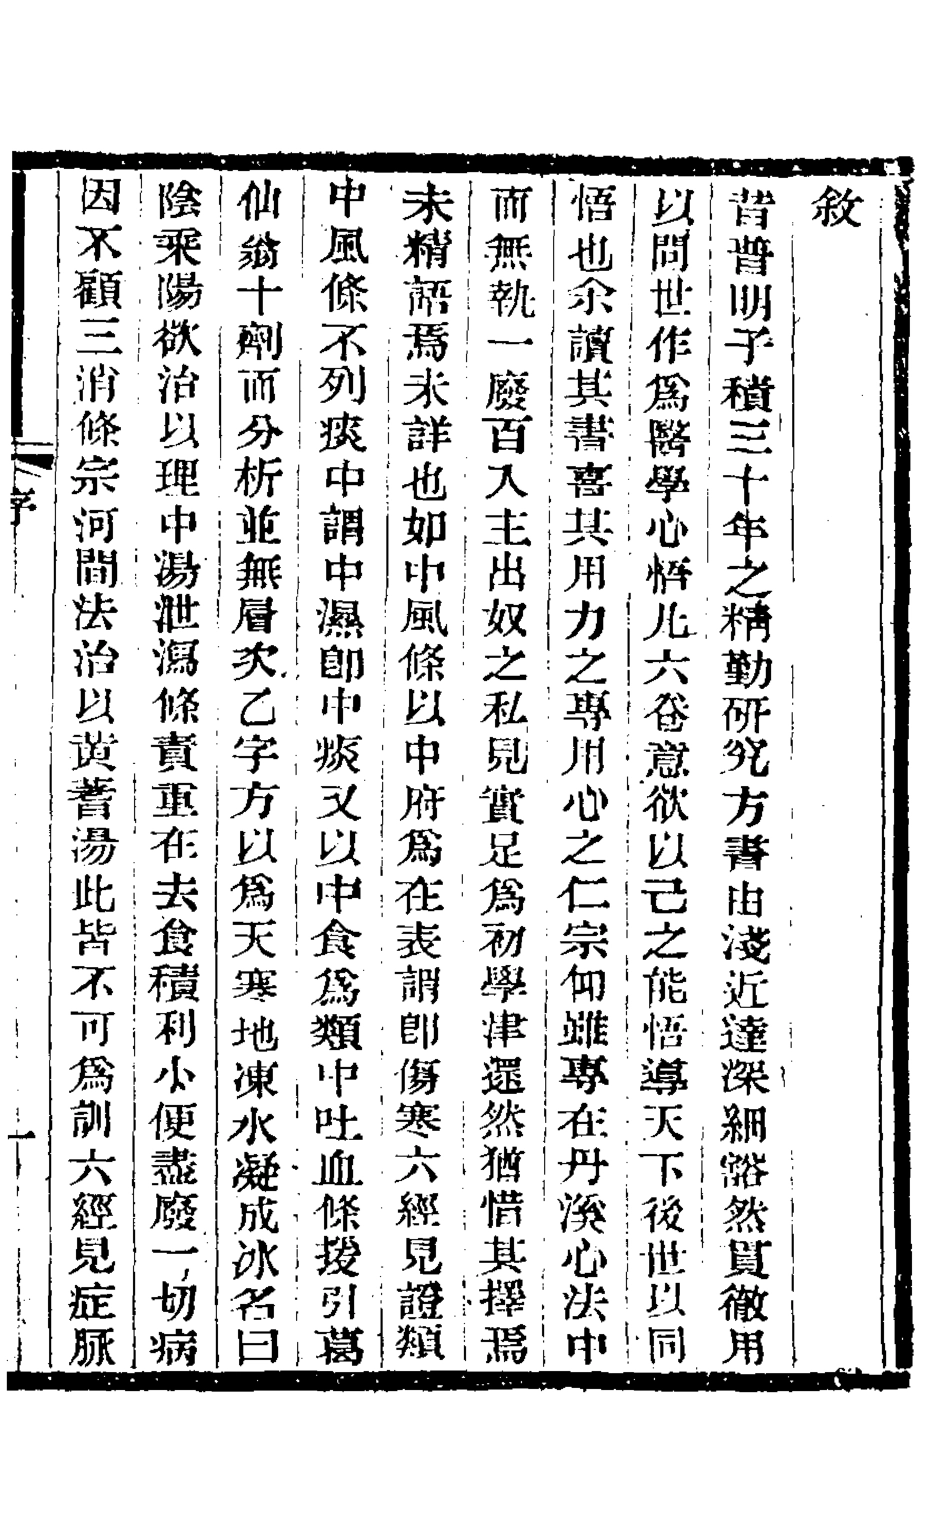 敘
昔普明子積三十年之精勤硏究方書由淺近達深細豁然貫徹用
以問世作爲醫學心悟凡六卷意欲以己之能悟導天下後世以同
悟也余讀其書喜其用力之專用心之仁宗仰雖專在丹溪心法中
而無執一廢百入主出奴之私見實足爲初學津還然猶惜其擇焉
未精語焉未詳也如中風條以中府爲在表謂卽傷寒六經見證類
中風條不列痰中謂中濕卽中痰又以中食爲類中吐血條援引葛
仙翁十劑而分析並無層次乙字方以爲天寒地凍水凝成冰名曰
陰乘陽欲治以理中湯泄瀉條責重在去食積利小便盡廢一切病
因不顧三消條宗河間法治以黄蓍湯此皆不可爲訓六經見症脈
序
一